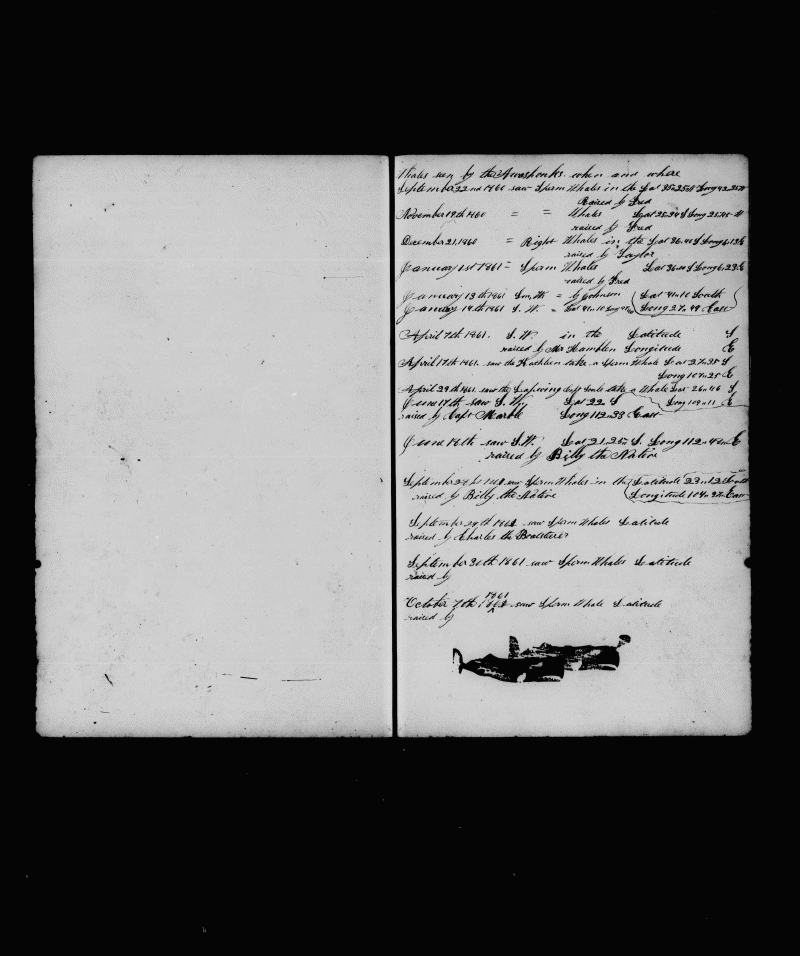 Whales seen by the Awashonks when and where
September 22nd 1860 saw Sperm Whales in the Lat 35=25 N Long 42=25 W
Raised by Fred
November 19th 1860 = = Whales Lat 25=24 S Long 25=45 W
raised by Fred
December 21, 1860 = Right Whales in the Lat 36=40 S Long 6=13 E
raised by Taylor
January 1st 1861 = Sperm Whales Lat 36=00 S Long 6=23 E
raised by Fred
January 13th 1861 = by Johnson Lat 41=10 South
January 14th 1861 S. W. = Long 27=49 East
April 7th 1861. S. W. in the Latitude S
raised by Mr Hamblen Longitude E
April 17th 1861. saw the Kathleen take a Sperm Whale Lat 27=35 S
Long 107=25 E
April 29th 1861. saw the Lapwing take a Whale Lat 26=16 S
June 17th saw S. W. Lat 22 S Long 109=11 E
raised by Capt Marble Long 112=33 East
June 18th saw S. W. Lat 21=25 S. Long 112=42 E
raised by Billy the Native
September 1861 saw Sperm Whales in the Latitude 23=12 South
raised by Billy the Native Longitude 104=37 East
September 29th 1861 saw Sperm Whales Latitude
raised by Charles the
September 30th 1861 saw Sperm Whales Latitude
raised by
1861
October 7th saw Sperm Whale Latitude
raised by